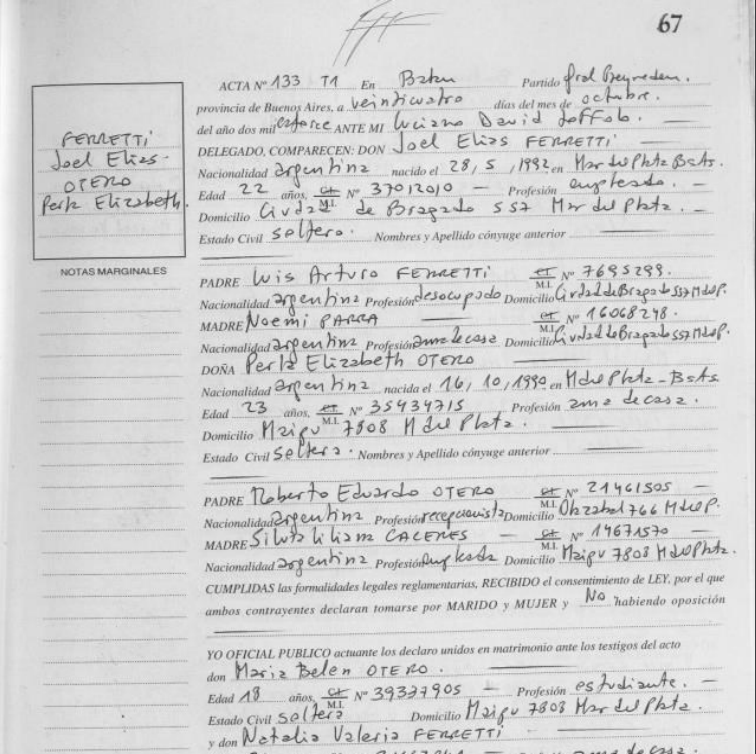 67
ACTA Nº 133 T1 En Batan Partido Gral Pueyrredon.
provincia de Buenos Aires, a veinticuatro días del mes de octubre.
del año dos mil catorce ANTE MI Luciano David Loffob.
DELEGADO, COMPARECEN: DON Joel Elias FERRETTI
Nacionalidad argentina nacido el 28, 5, 1992 en Mar del Plata BsAs.
Edad 22 años, CI M.I. Nº 37012010 — Profesión empleado. —
Domicilio Ciudad de Bragado 557 Mar del Plata. —
Estado Civil soltero. Nombres y Apellido cónyuge anterior
FERRETTI
Joel Elias-
OTERO
Perla Elizabeth.
NOTAS MARGINALES
PADRE Luis Arturo FERRETTI CI M.I. Nº 7695299.
Nacionalidad argentina Profesión desocupado Domicilio Ciudad de Bragado 557 MdelP.
MADRE Noemi PARRA CI M.I. Nº 16068248.
Nacionalidad argentina Profesión ama de casa Domicilio Ciudad de Bragado 557 MdelP.
DOÑA Perla Elizabeth OTERO
Nacionalidad argentina nacida el 16, 10, 1990 en M del Plata - BsAs
Edad 23 años, CI M.I. Nº 35434715 Profesión ama de casa.
Domicilio Maipu 7808 M del Plata.
Estado Civil soltera. Nombres y Apellido cónyuge anterior
PADRE Roberto Eduardo OTERO CI M.I. Nº 21461505 —
Nacionalidad argentina Profesión recepcionista Domicilio Olazabal 766 MdelP.
MADRE Silvia Liliana CACERES — CI M.I. Nº 14671570 —
Nacionalidad argentina Profesión empleada Domicilio Maipu 7808 MdelPlata.
CUMPLIDAS las formalidades legales reglamentarias, RECIBIDO el consentimiento de LEY, por el que
ambos contrayentes declaran tomarse por MARIDO y MUJER y No habiendo oposición
YO OFICIAL PUBLICO actuante los declaro unidos en matrimonio ante los testigos del acto
don Maria Belen OTERO.
Edad 18 años, CI M.I. Nº 39337905 — Profesión estudiante. —
Estado Civil soltera Domicilio Maipu 7808 Mar del Plata.
y don Natalia Valeria FERRETTI
ama de casa.